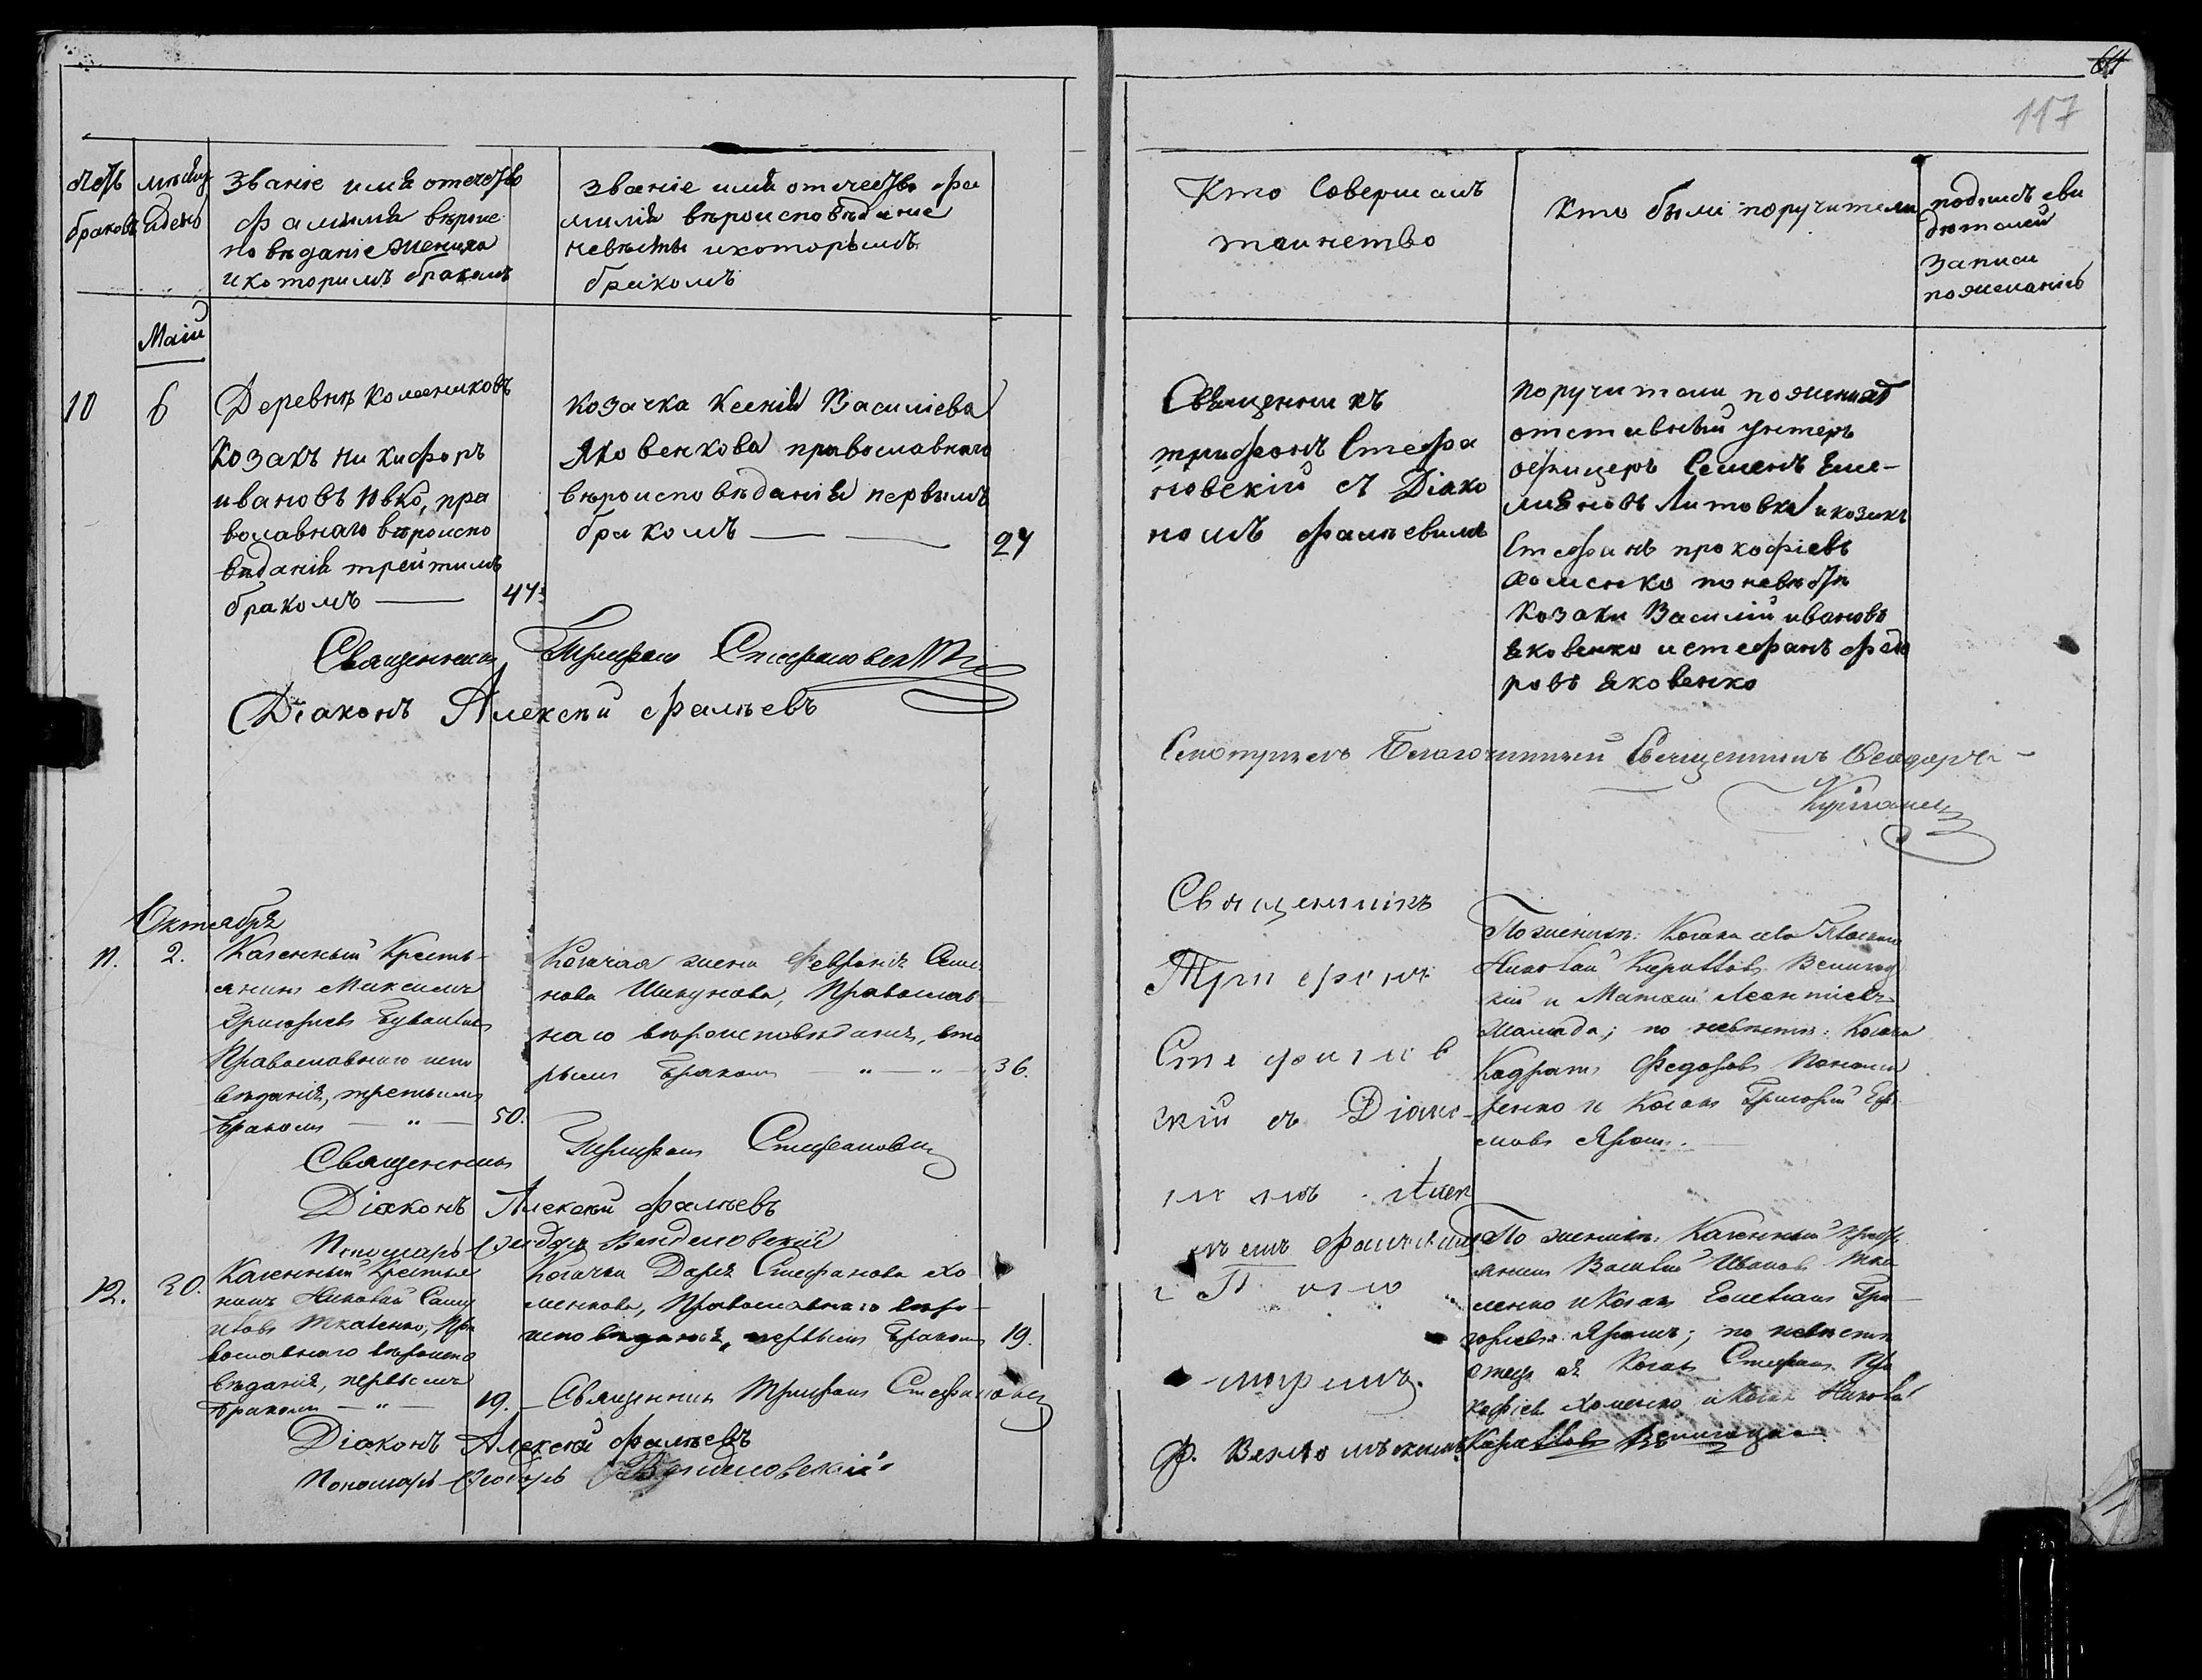 64
117
счетъ браковъ
мѣсяцъ и день
Званіе имя отечество
фамилія вѣроис
повѣданіе жениха
и которимъ бракомъ
званіе имя отечество фа
милія вѣроисповѣданіе
невѣсты и которымъ
бракомъ
Кто Совершалъ
таинство
Кто были поручители
подписъ сви
дѣтелей
записи
по желанію
Маій
10
6
Деревнѣ
козакъ Никифоръ
ивановъ Ювко, пра
вославнаго вѣроиспо
вѣданія третимъ
бракомъ —
47
козачка Ксенія Василіева
Яковенкова православнаго
вѣроисповѣданія первымъ
бракомъ — —
27
Священникъ
трифонъ Стефа
новскій съ Діако
номъ фалѣевимъ
поручители по женихѣ
отставный унтеръ
офицеръ Семенъ Еме-
ляновъ Литовка и козакъ
Стефанъ прокофіевъ
хоменко по невѣстѣ
козаки Василій ивановъ
яковенко и стефанъ федо
ровъ яковенко
Священникъ Трифонъ Стефановскій
Діаконъ Алексѣй фалѣевъ
Смотрѣлъ Благочинный Священникъ Феодоръ
Октября
11.
2.
Казенный Кресть-
янинъ Максимъ
Григорьевъ
Православнаго испо
вѣданія, третьимъ
бракомъ — " —
50.
Козачая жена Февронія Семе
нова Шикунова, Православ-
наго вѣроисповѣданія, вто
рымъ бракомъ — " — " —
36.
Священникъ
Трифонъ
Стефанов
скій съ Діако-
номъ Алек
сѣемъ Фалѣевимъ
и Поно
маремъ
По женихѣ: Козаки села
Николай
и Матвѣй Леонтіевъ
по невѣстѣ: Козаки
Кодратъ Федоровъ Понома
ренко и Козакъ Григорій
Ярошъ.
Священникъ Трифонъ Стефановскій
Діаконъ Алексѣй фалѣевъ
Пономарь Феодоръ
12.
30.
Казенный Крестья
нинъ Николай Саму
иловъ Ткаченко, Пра
вославнаго вѣроиспо
вѣданія, первымъ
бракомъ — " —
19.
Козачка Дарья Стефанова Хо
менкова, Православнаго вѣро-
исповѣданія, первымъ бракомъ
19.
По женихѣ: Казенный крест
янинъ Василій Ивановъ Тка
ченко и Козакъ Емельянъ Гри
горьевъ Ярошъ; по невѣстѣ
отецъ ея Козакъ Стефанъ Про
кофіевъ Хоменко и Козакъ Николай
Священникъ Трифонъ Стефановскій
Діаконъ Алексѣй фалѣевъ
Пономарь Феодоръ